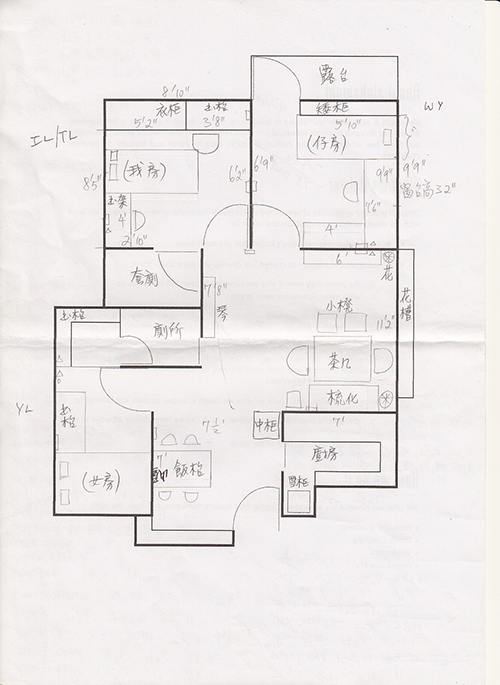 露台
8'10"
衣柜
书枱
矮柜
W Y
5'2"
3'8"
5'10"
IL/TL
(我房)
(仔房)
8'5"
6'2"
6'9"
9'9"
9'9"
窗台高32"
书架
4'
7'6"
2'10"
4'
6'
套廁
7'8"
琴
花
花槽
小櫈
11'2"
书枱
廁所
茶几
梳化
YL
书枱
7½'
中柜
7'
廚房
7'
飯枱
(女房)
雪柜